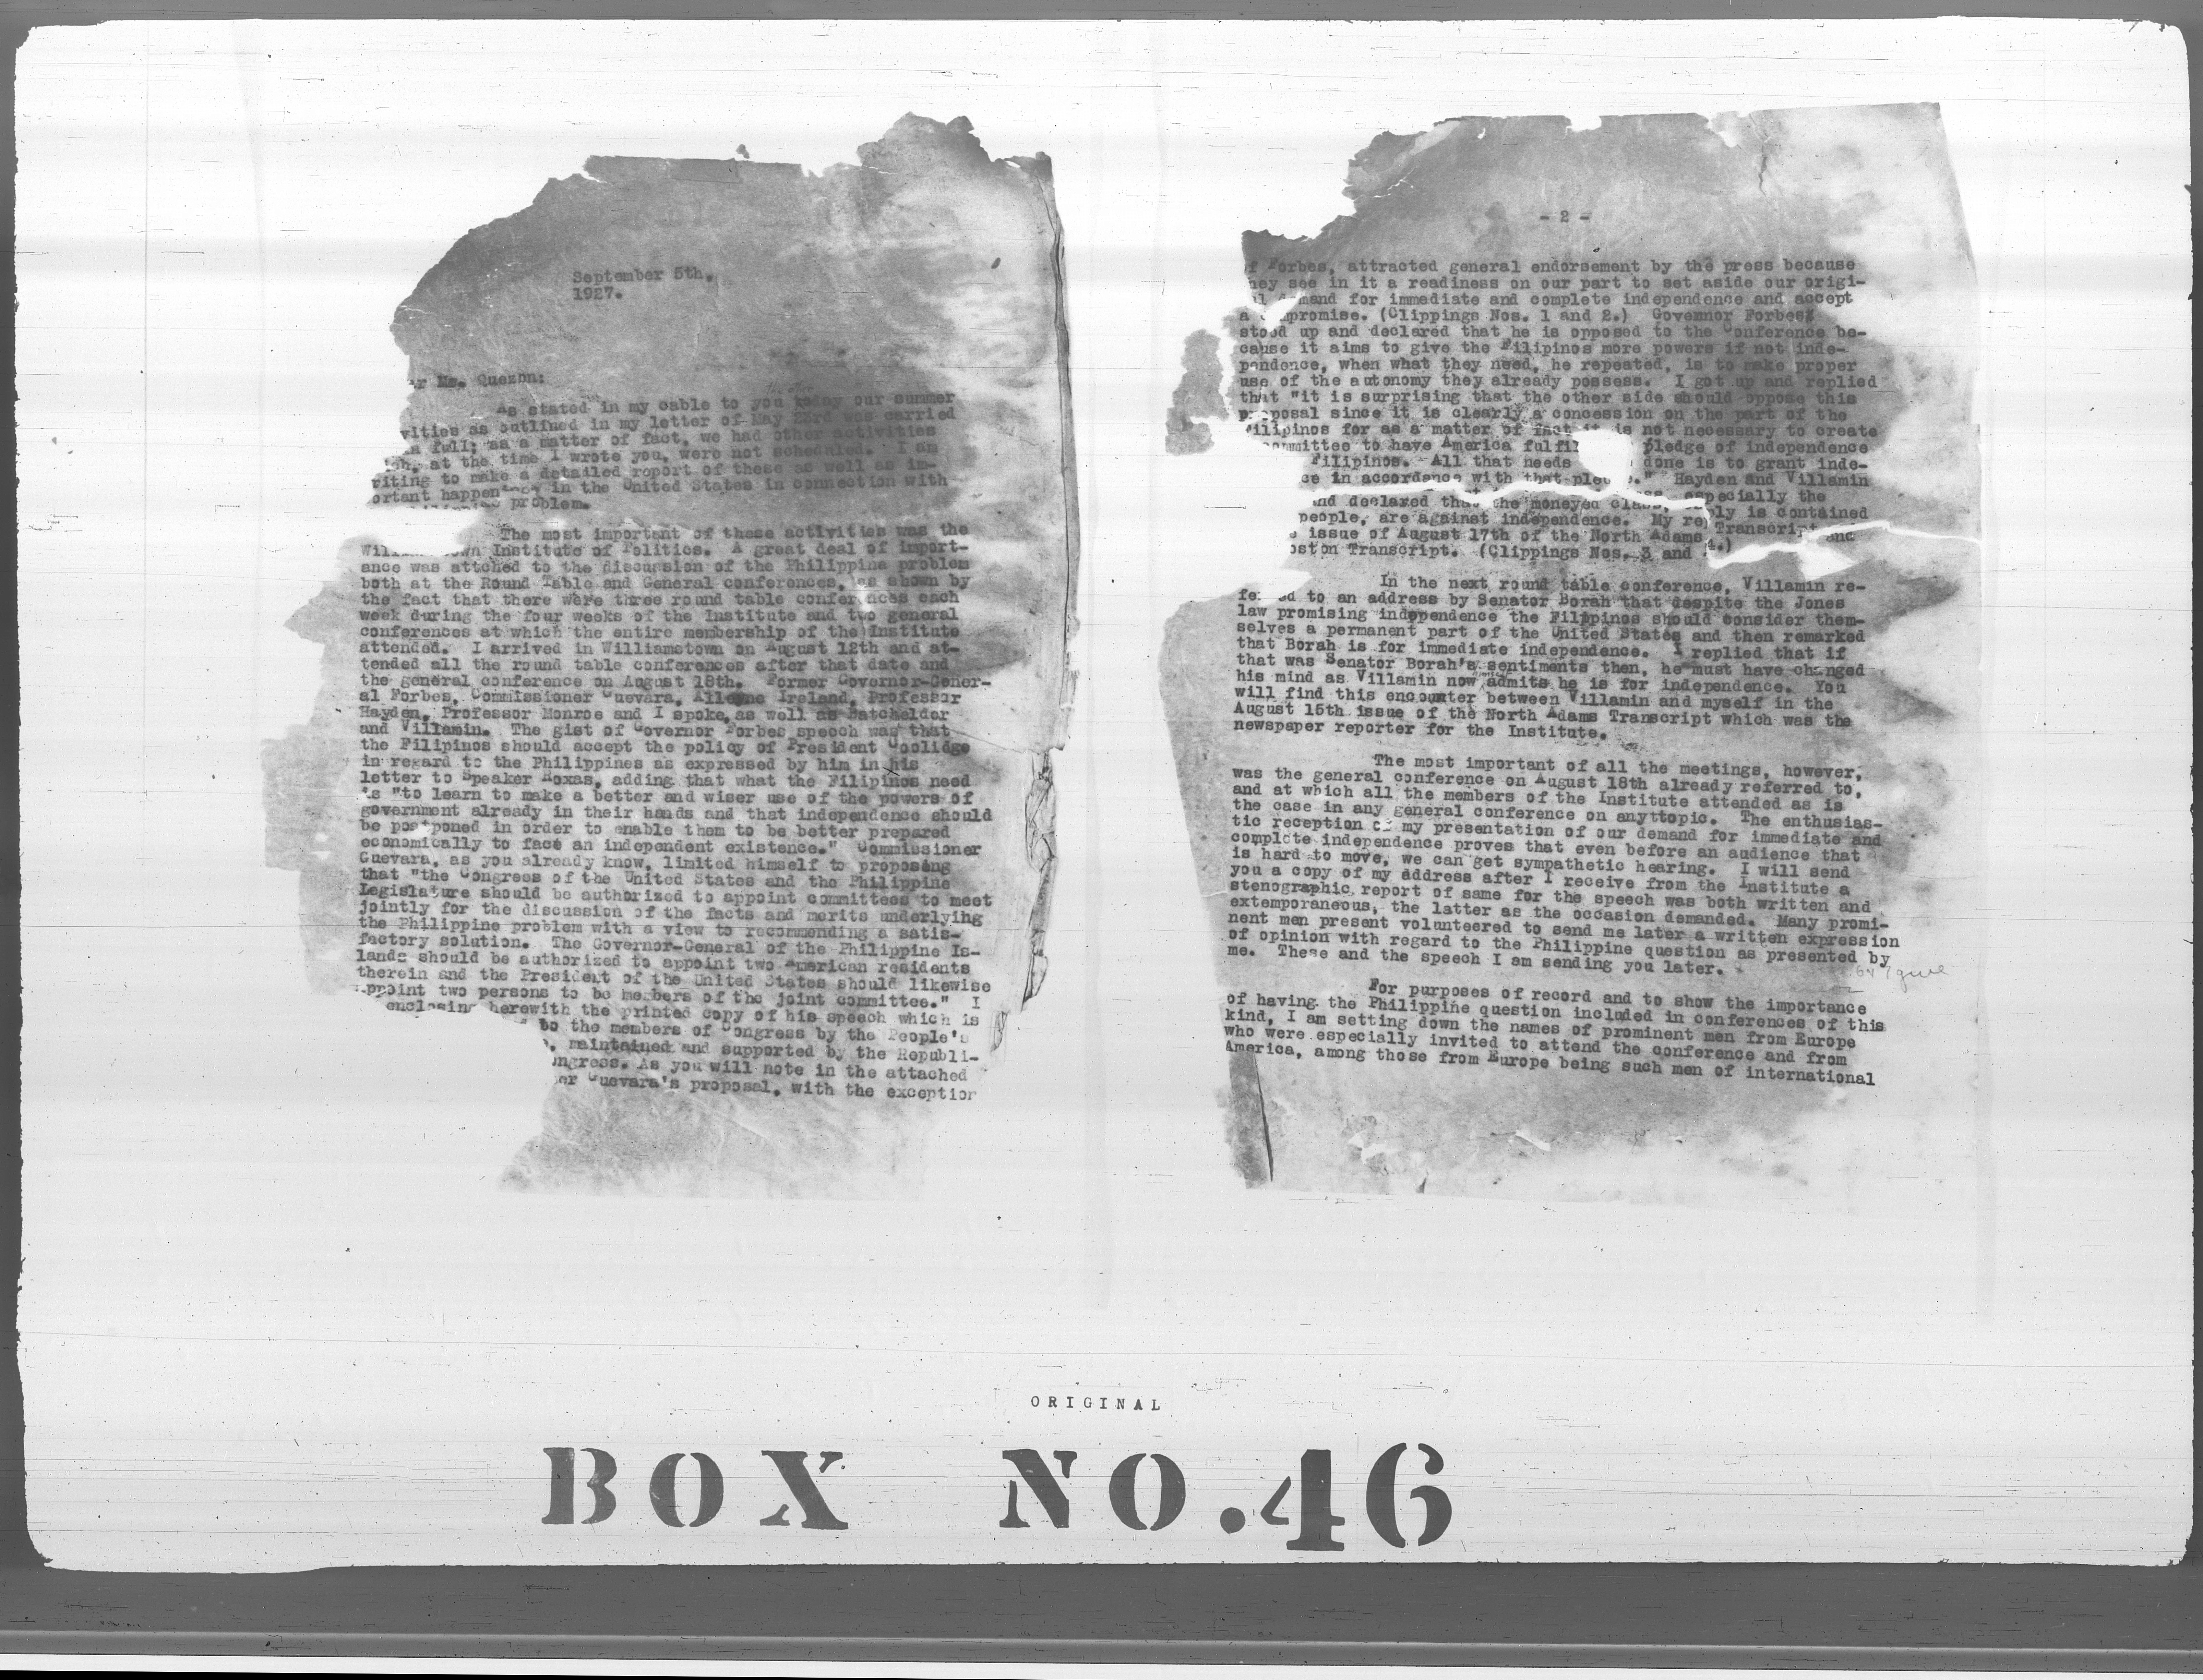 September 5th,
1927.
Mr. Quezon:
As stated in my cable to you today our summer
vities as outlined in my letter of May 23rd was carried
full; as a matter of fact, we had other activities
at the time I wrote you, were not scheduled. I am
riting to make a detailed report of these as well as im-
ortant happen in the United States in connection with
problem.
The most important of these activities was the
Will own Institute of Politics. A great deal of import-
ance was attched to the discussion of the Philippine problem
both at the Round Table and General conferences, as shown by
the fact that there were three round table conferences each
week during the four weeks of the Institute and two general
conferences at which the entire membership of the Institute
attended. I arrived in Williamstown on August 12th and at-
tended all the round table conferences after that date and
the general conference on August 18th. Former Governor-Gener-
al Forbes, Commissioner Guevara, Alleyne Ireland, Professor
Hayden, Professor Monroe and I spoke, as well as Batchelder
and Villamin. The gist of Governor Forbes speech was that
the Filipinos should accept the policy of President Coolidge
in regard to the Philippines as expressed by him in his
letter to Speaker Roxas, adding that what the Filipinos need
is "to learn to make a better and wiser use of the powers of
government already in their hands and that independence should
be postponed in order to enable them to be better prepared
economically to face an independent existence." Commissioner
Guevara, as you already know, limited himself to proposing
that "the Congress of the United States and the Philippine
Legislature should be authorized to appoint committees to meet
jointly for the discussion of the facts and merits underlying
the Philippine problem with a view to recommending a satis-
factory solution. The Governor-General of the Philippine Is-
lands should be authorized to appoint two American residents
therein and the President of the United States should likewise
appoint two persons to be members of the joint committee." I
enclosing herewith the printed copy of his speech which is
to the members of Congress by the People's
, maintained and supported by the Republi-
ongress. As you will note in the attached
er Guevara's proposal, with the exception
- 2 -
of Forbes, attracted general endorsement by the press because
hey see in it a readiness on our part to set aside our origi-
al demand for immediate and complete independence and accept
a compromise. (Clippings Nos. 1 and 2.) Governor Forbes
stood up and declared that he is opposed to the Conference be-
cause it aims to give the Filipinos more powers if not inde-
pendence, when what they need, he repeated, is to make proper
use of the autonomy they already possess. I got up and replied
that "it is surprising that the other side should oppose this
proposal since it is clearly a concession on the part of the
Filipinos for as a matter of fact it is not necessary to create
committee to have America fulfil pledge of independence
Filipinos. All that needs done is to grant inde-
ce in accordance with that pled ." Hayden and Villamin
nd declared that the moneyed class, especially the
people, are against independence. My reply is contained
issue of August 17th of the North Adams Transcript and
oston Transcript. (Clippings Nos. 3 and 4.)
In the next round table conference, Villamin re-
fe ed to an address by Senator Borah that despite the Jones
law promising independence the Filipinos should consider them-
selves a permanent part of the United States and then remarked
that Borah is for immediate independence. I replied that if
that was Senator Borah's sentiments then, he must have changed
his mind as Villamin now admits he is for independence. You
will find this encounter between Villamin and myself in the
August 15th issue of the North Adams Transcript which was the
newspaper reporter for the Institute.
The most important of all the meetings, however,
was the general conference on August 18th already referred to,
and at which all the members of the Institute attended as is
the case in any general conference on anyttopic. The enthusias-
tic reception of my presentation of our demand for immediate and
complete independence proves that even before an audience that
is hard to move, we can get sympathetic hearing. I will send
you a copy of my address after I receive from the Institute a
stenographic report of same for the speech was both written and
extemporaneous, the latter as the occasion demanded. Many promi-
nent men present volunteered to send me later a written expression
of opinion with regard to the Philippine question as presented by
me. These and the speech I am sending you later.
For purposes of record and to show the importance
of having the Philippine question included in conferences of this
kind, I am setting down the names of prominent men from Europe
who were especially invited to attend the conference and from
America, among those from Europe being such men of international
ORIGINAL
BOX NO.46